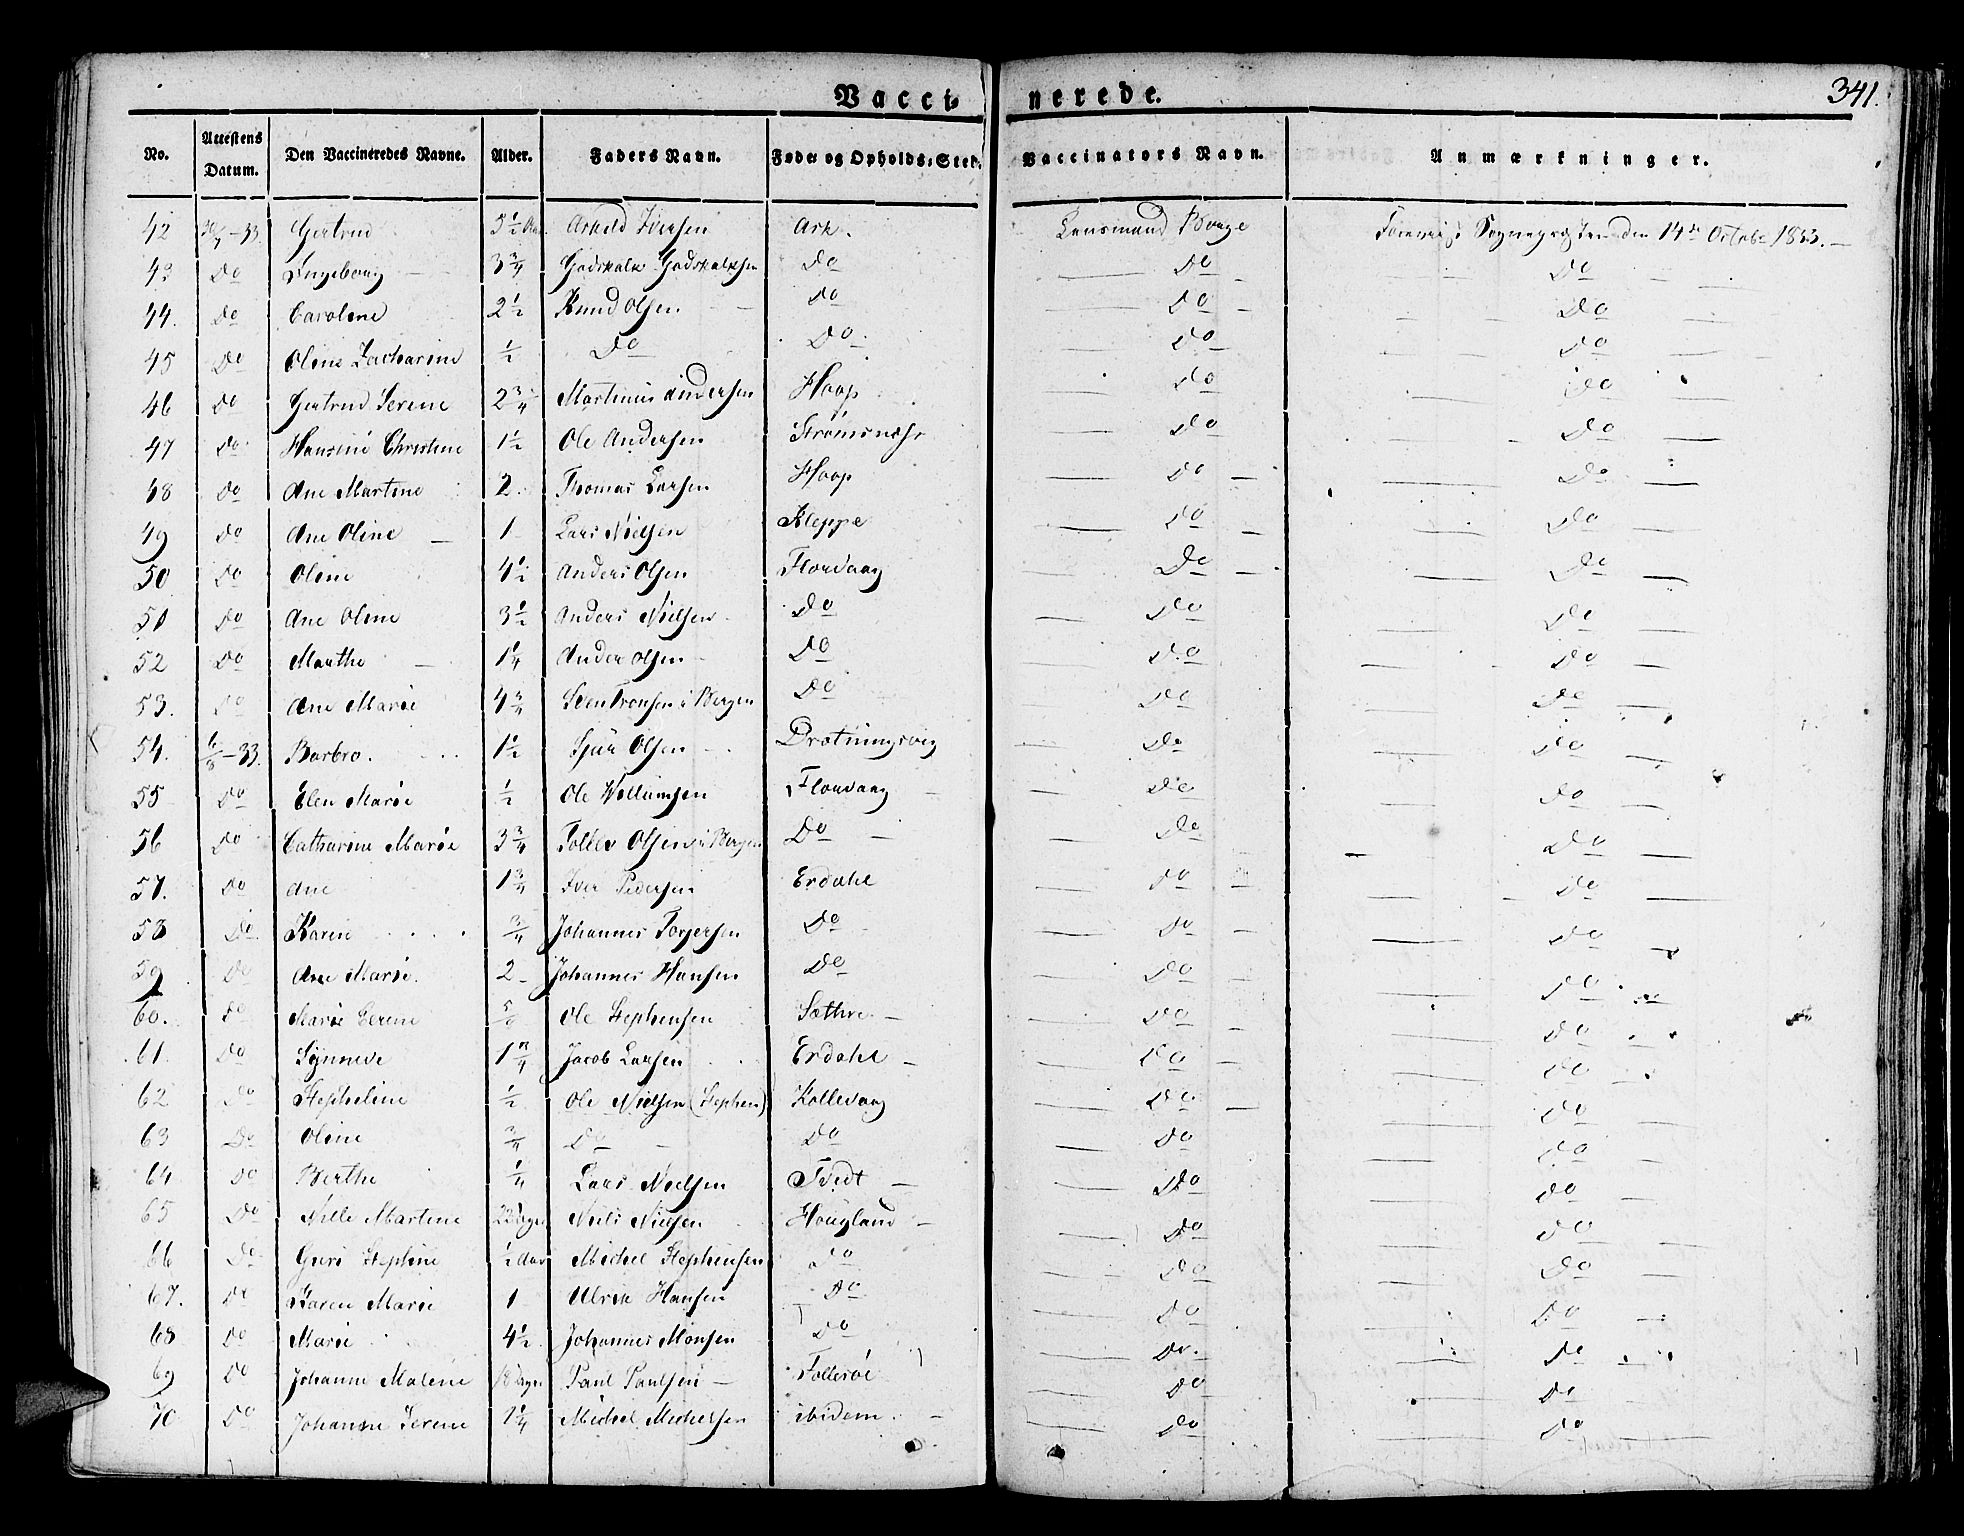 Vaccinerede.
341.
No. Attestens Datum. Den Vaccineredes Navne. Alder. Faders Navn. Føde og Opholds-Sted. Vaccinators Navn. Anmærkninger.
42 -33. Gertrud 5 1/2 Aar Iversen Ask. Lensmand 14de Octobr 1833.
43 Do Ingeborg 3 3/4 Godskalk Godskalksen Do Do Do
44. Do Caroline 2 1/2 Knud Olsen Do Do Do
45 Do Oline Zacharine 1/2 Do Do Do Do
46 Do Gertrud Serene 2 3/4 Martinus Andersen Hoop Do Do
47 Do Hansine Christine 1 1/2 Ole Andersen Strømsnæss Do Do
48 Do Ane Martine 2. Thomas Larsen Hoop Do Do
49 Do Ane Oline 1 Lars Nielsen Kleppe Do Do
50 Do Oline 4 1/2 Anders Olsen Florvaag Do Do
51 Do Ane Oline 3 1/2 Anders Nielsen Do Do Do
52 Do Marthe 1 1/4 Anders Olsen Do Do Do
53. Do Ane Marie 4 3/4 i Bergen Do Do Do
54. 6/8-33. Barbro. 1 1/2 Sjur Olsen Drotningsvig Do Do
55 Do Elen Marie 1/2 Ole Willumsen Florvaag Do Do
56 Do Catharine Marie 3 3/4 Toller Olsen i Bergen Do Do Do
57. Do Ane 1 3/4 Iver Pedersen Erdahl Do Do
58 Do Karen 3/4 Johannes Torjersen Do Do Do
59 Do Ane Marie. 2 Johannes Hansen Do Do Do
60. Do Marie Serene Ole Stephensen Sæthre Do Do
61. Do Synneve 1 Jacob Larsen Erdahl Do Do
62 Do Stepheline 1/2 Ole Nielsen (Stephen) Kollevaag Do Do
63 Do Oline 3/4 Do Do Do Do
64 Do Berthe 1/4 Lars Nielsen Tvedt Do Do
65 Do Nille Martine Niels Nielsen Hougland Do Do
66 Do Guri Stephine 1/2 Aar Michel Stephensen Do Do Do
67. Do Karen Marie 1 Ulrik Hansen Do Do Do
68 Do Marie 4 1/2 Johannes Monsen Do Do Do
69 Do Johanne Malene Paul Paulsen Follesøe Do Do
70 Do Johanne Serene 1 1/4 Michel Michelsen ibidem. Do Do